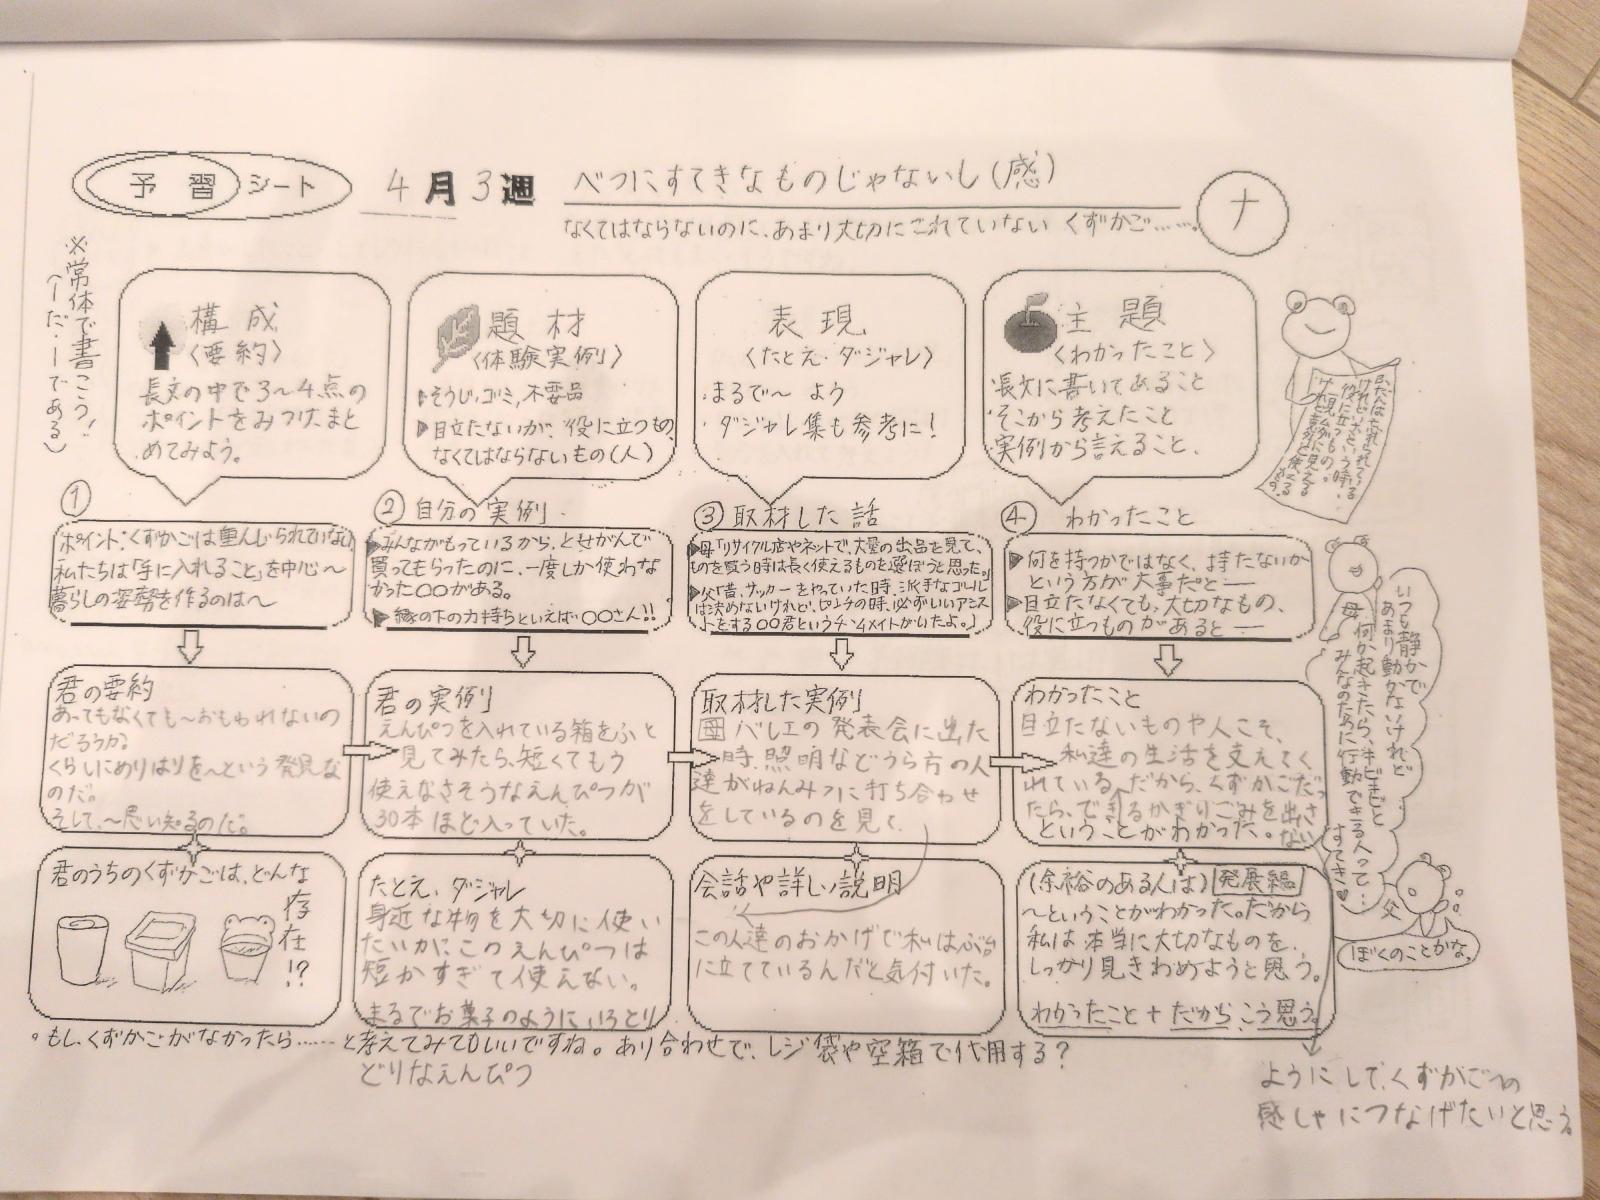 予習シート 4月3週 べつにすてきなものじゃないし(感)
ナ
なくてはならないのに、あまり大切にされていない くずかご……。
※常体で書こう!
(ーだ・ーである)
構成
〈要約〉
長文の中で3〜4点の
ポイントをみつけ、まと
めてみよう。
題材
〈体験実例〉
▶そうじ、ゴミ、不要品
▶目立たないが、役に立つもの、
なくてはならないもの(人)
表現
〈たとえ・ダジャレ〉
・まるで〜よう
・ダジャレ集も参考に!
主題
〈わかったこと〉
・長文に書いてあること
・そこから考えたこと
・実例から言えること
①
ポイント:くずかごは重んじられていない
私たちは「手に入れること」を中心〜
暮らしの姿勢を作るのは〜
②自分の実例
▶みんながもっているから、とせがんで
買ってもらったのに、一度しか使わな
かった〇〇がある。
▶縁の下の力持ちといえば〇〇さん!!
③取材した話
▶母「リサイクル店やネットで、大量の出品を見て、
ものを買う時は長く使えるものを選ぼうと思った。」
▶父「昔、サッカーをやっていた時、派手なゴール
は決めないけれど、ピンチの時、必ずいいアシス
トをする〇〇君というチームメイトがいたよ。」
④わかったこと
▶何を持つかではなく、持たないか
という方が大事だと―
▶目立たなくても、大切なもの、
役に立つものがあると―
君の要約
あってもなくても〜おもわれないの
だろうか。
くらしにめりはりを〜という発見な
のだ。
そして、〜思い知るのだ。
君の実例
えんぴつを入れている箱をふと
見てみたら、短くてもう
使えなさそうなえんぴつが
30本ほど入っていた。
取材した実例
母 バレエの発表会に出た
時、照明などうら方の人
達がねんみつに打ち合わせ
をしているのを見て
わかったこと
目立たないものや人こそ、
私達の生活を支えてく
れている。だから、くずかごだっ
たら、できるかぎりごみを出さ
ない
ということがわかった。
君のうちのくずかごは、どんな
存在!?
たとえ、ダジャレ
身近な物を大切に使い
たいがこのえんぴつは
短かすぎて使えない。
まるでお菓子のようにいろとり
どりなえんぴつ
会話や詳しい説明
この人達のおかげで私はぶ台
に立てているんだと気付いた。
(余裕のある人は)発展編
〜ということがわかった。だから
私は本当に大切なものを、
しっかり見きわめようと思う。
わかったこと+だから、こう思う。
ようにして、くずかごへの
感しゃにつなげたいと思う。
。もし、くずかごがなかったら……と考えてみてもいいですね。あり合わせで、レジ袋や空箱で代用する?
いつも静かで
あまり動かないけれど
何か起きたら、キビキビと
みんなのために行動できる人って…
すてき♥
母
父
ぼくのことかな。